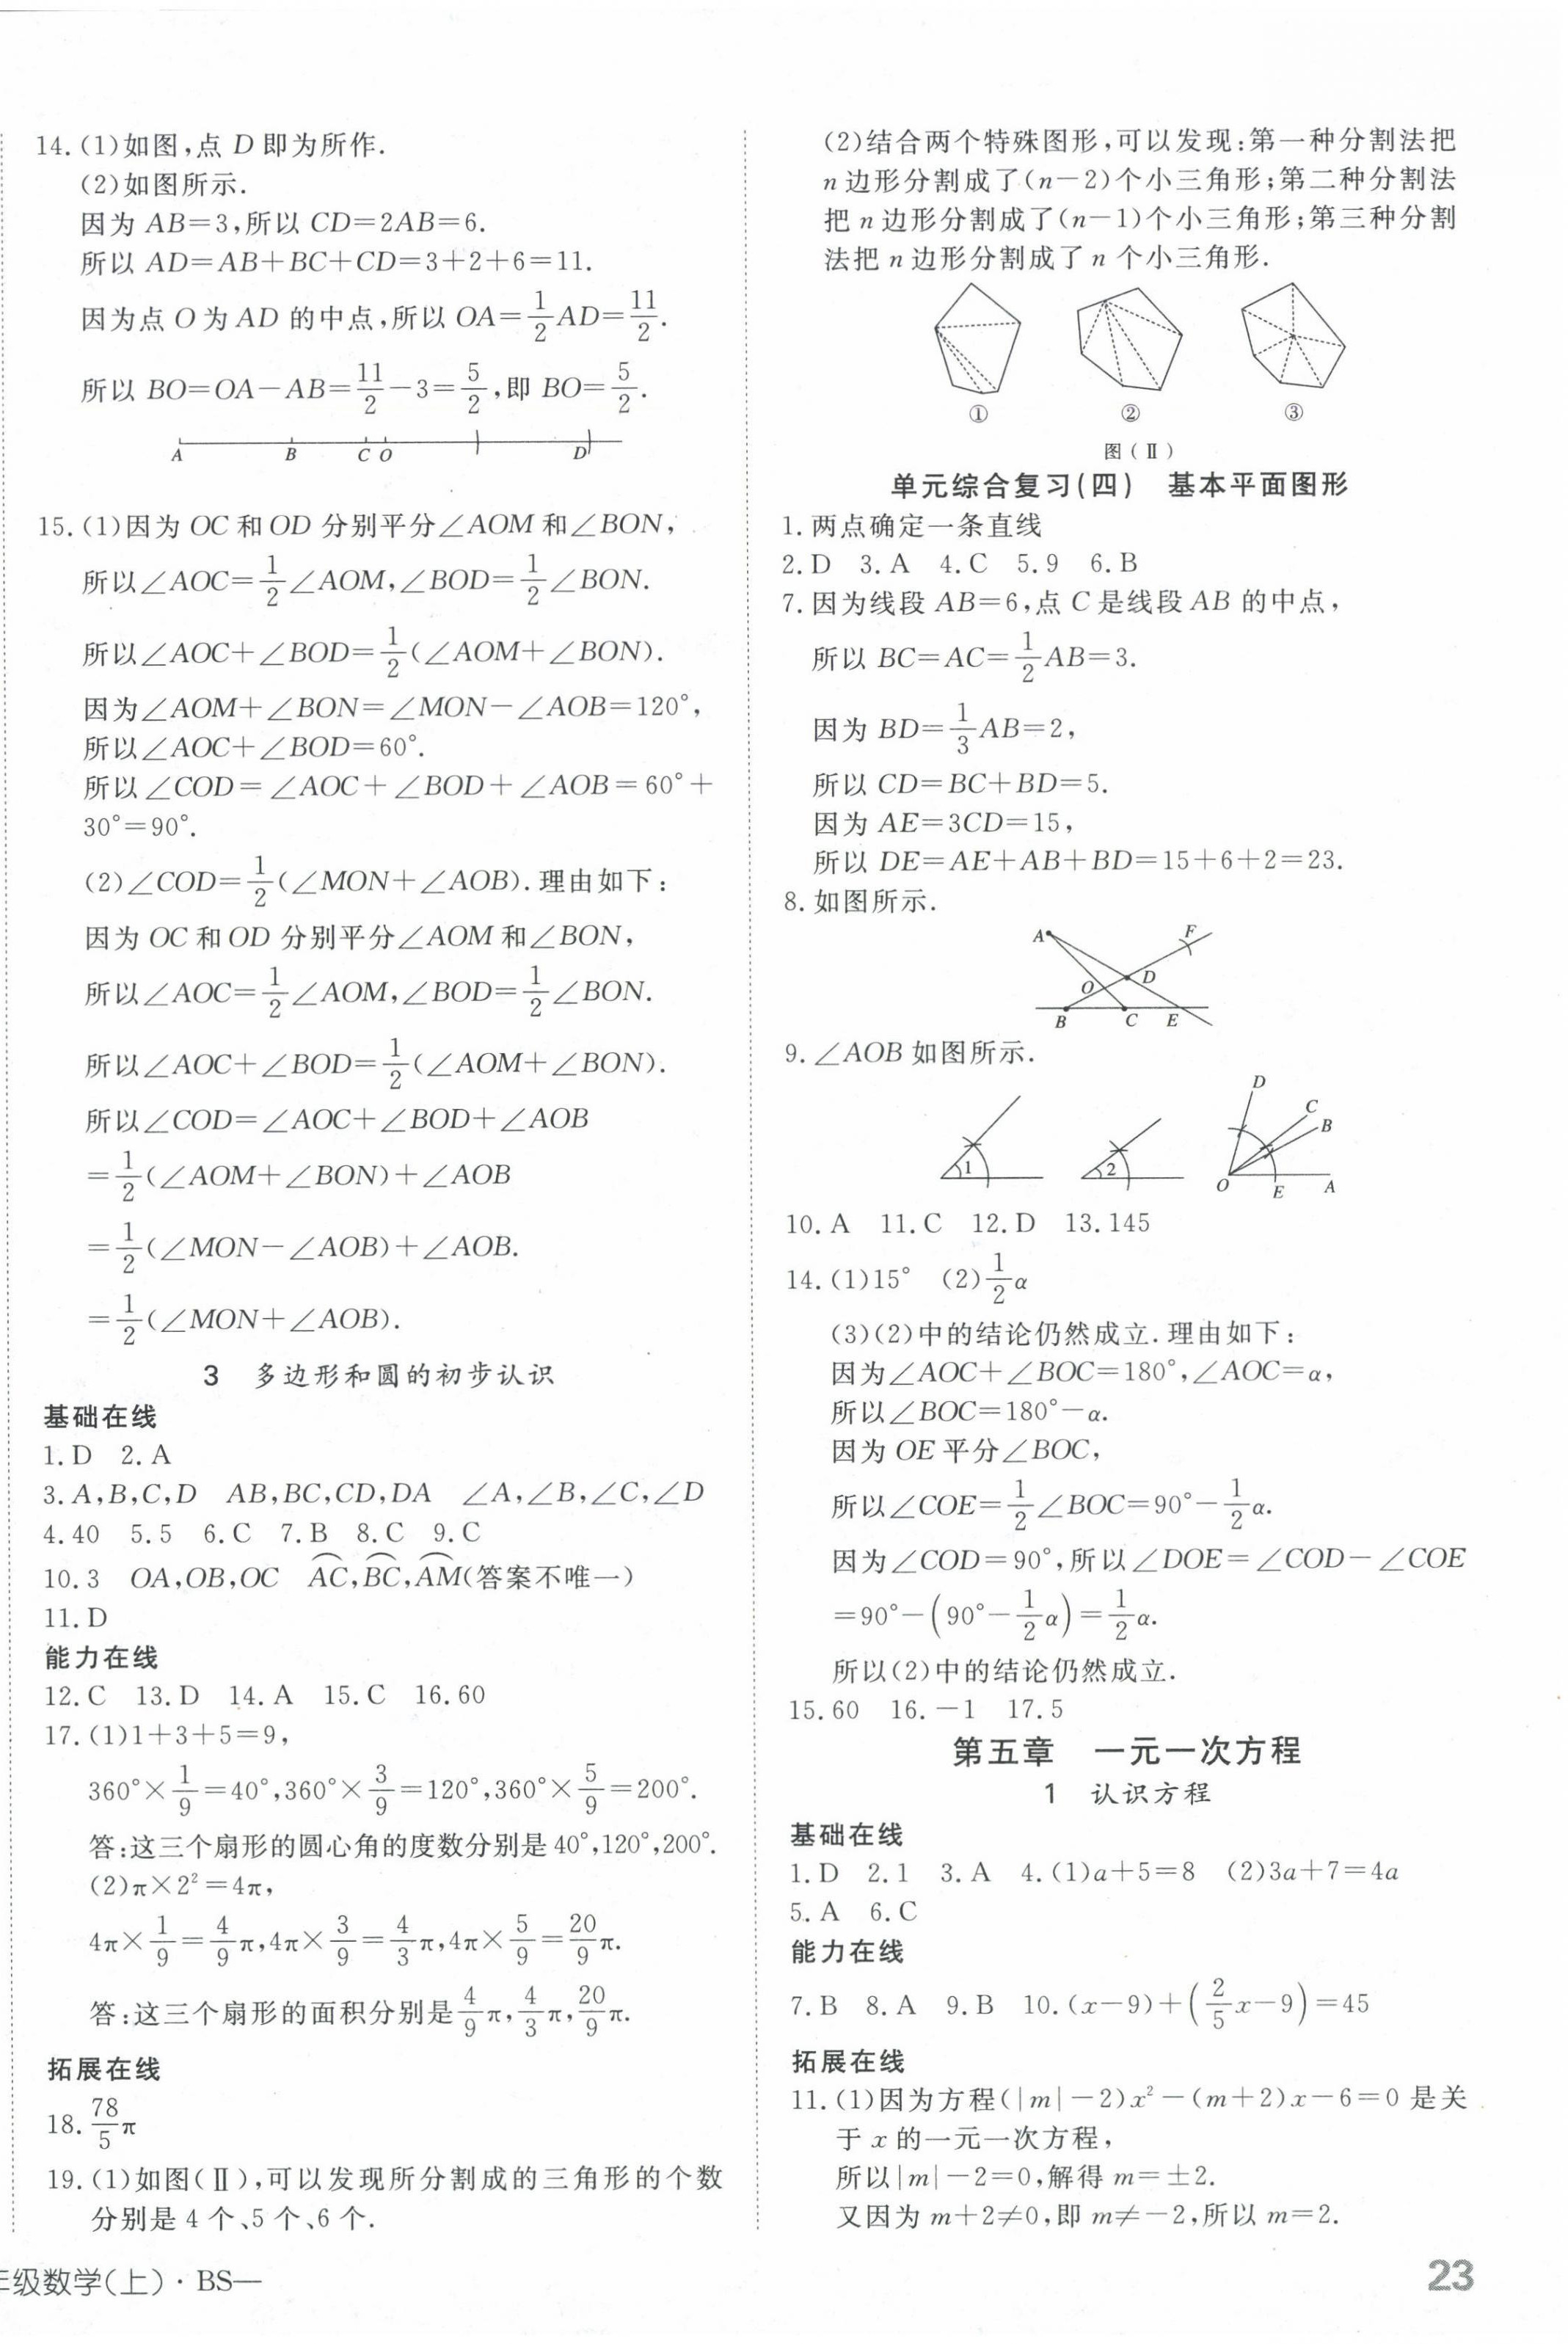 14.(1)如图,点 D 即为所作.
(2)如图所示.
因为 AB=3,所以 CD=2AB=6.
所以 AD=AB+BC+CD=3+2+6=11.
因为点 O 为 AD 的中点,所以 OA=1/2 AD=11/2.
所以 BO=OA-AB=11/2-3=5/2,即 BO=5/2.
A B C O D
15.(1)因为 OC 和 OD 分别平分∠AOM 和∠BON,
所以∠AOC=1/2∠AOM,∠BOD=1/2∠BON.
所以∠AOC+∠BOD=1/2(∠AOM+∠BON).
因为∠AOM+∠BON=∠MON-∠AOB=120°,
所以∠AOC+∠BOD=60°.
所以∠COD=∠AOC+∠BOD+∠AOB=60°+
30°=90°.
(2)∠COD=1/2(∠MON+∠AOB).理由如下:
因为 OC 和 OD 分别平分∠AOM 和∠BON,
所以∠AOC=1/2∠AOM,∠BOD=1/2∠BON.
所以∠AOC+∠BOD=1/2(∠AOM+∠BON).
所以∠COD=∠AOC+∠BOD+∠AOB
=1/2(∠AOM+∠BON)+∠AOB
=1/2(∠MON-∠AOB)+∠AOB.
=1/2(∠MON+∠AOB).
3 多边形和圆的初步认识
基础在线
1.D 2.A
3.A,B,C,D AB,BC,CD,DA ∠A,∠B,∠C,∠D
4.40 5.5 6.C 7.B 8.C 9.C
10.3 OA,OB,OC A͡C,B͡C,A͡M(答案不唯一)
11.D
能力在线
12.C 13.D 14.A 15.C 16.60
17.(1)1+3+5=9,
360°×1/9=40°,360°×3/9=120°,360°×5/9=200°.
答:这三个扇形的圆心角的度数分别是 40°,120°,200°.
(2)π×2²=4π,
4π×1/9=4/9π,4π×3/9=4/3π,4π×5/9=20/9π.
答:这三个扇形的面积分别是4/9π,4/3π,20/9π.
拓展在线
18.78/5π
19.(1)如图(Ⅱ),可以发现所分割成的三角形的个数
分别是 4 个、5 个、6 个.
(2)结合两个特殊图形,可以发现:第一种分割法把
n 边形分割成了(n-2)个小三角形;第二种分割法
把 n 边形分割成了(n-1)个小三角形;第三种分割
法把 n 边形分割成了 n 个小三角形.
① ② ③
图(Ⅱ)
单元综合复习(四) 基本平面图形
1.两点确定一条直线
2.D 3.A 4.C 5.9 6.B
7.因为线段 AB=6,点 C 是线段 AB 的中点,
所以 BC=AC=1/2 AB=3.
因为 BD=1/3 AB=2,
所以 CD=BC+BD=5.
因为 AE=3CD=15,
所以 DE=AE+AB+BD=15+6+2=23.
8.如图所示.
A F
O D
B C E
9.∠AOB 如图所示.
D
C
B
1 2
O E A
10.A 11.C 12.D 13.145
14.(1)15° (2)1/2α
(3)(2)中的结论仍然成立.理由如下:
因为∠AOC+∠BOC=180°,∠AOC=α,
所以∠BOC=180°-α.
因为 OE 平分∠BOC,
所以∠COE=1/2∠BOC=90°-1/2α.
因为∠COD=90°,所以∠DOE=∠COD-∠COE
=90°-(90°-1/2α)=1/2α.
所以(2)中的结论仍然成立.
15.60 16.-1 17.5
第五章 一元一次方程
1 认识方程
基础在线
1.D 2.1 3.A 4.(1)a+5=8 (2)3a+7=4a
5.A 6.C
能力在线
7.B 8.A 9.B 10.(x-9)+(2/5x-9)=45
拓展在线
11.(1)因为方程(|m|-2)x²-(m+2)x-6=0 是关
于 x 的一元一次方程,
所以|m|-2=0,解得 m=±2.
又因为 m+2≠0,即 m≠-2,所以 m=2.
级数学(上)·BS—
23